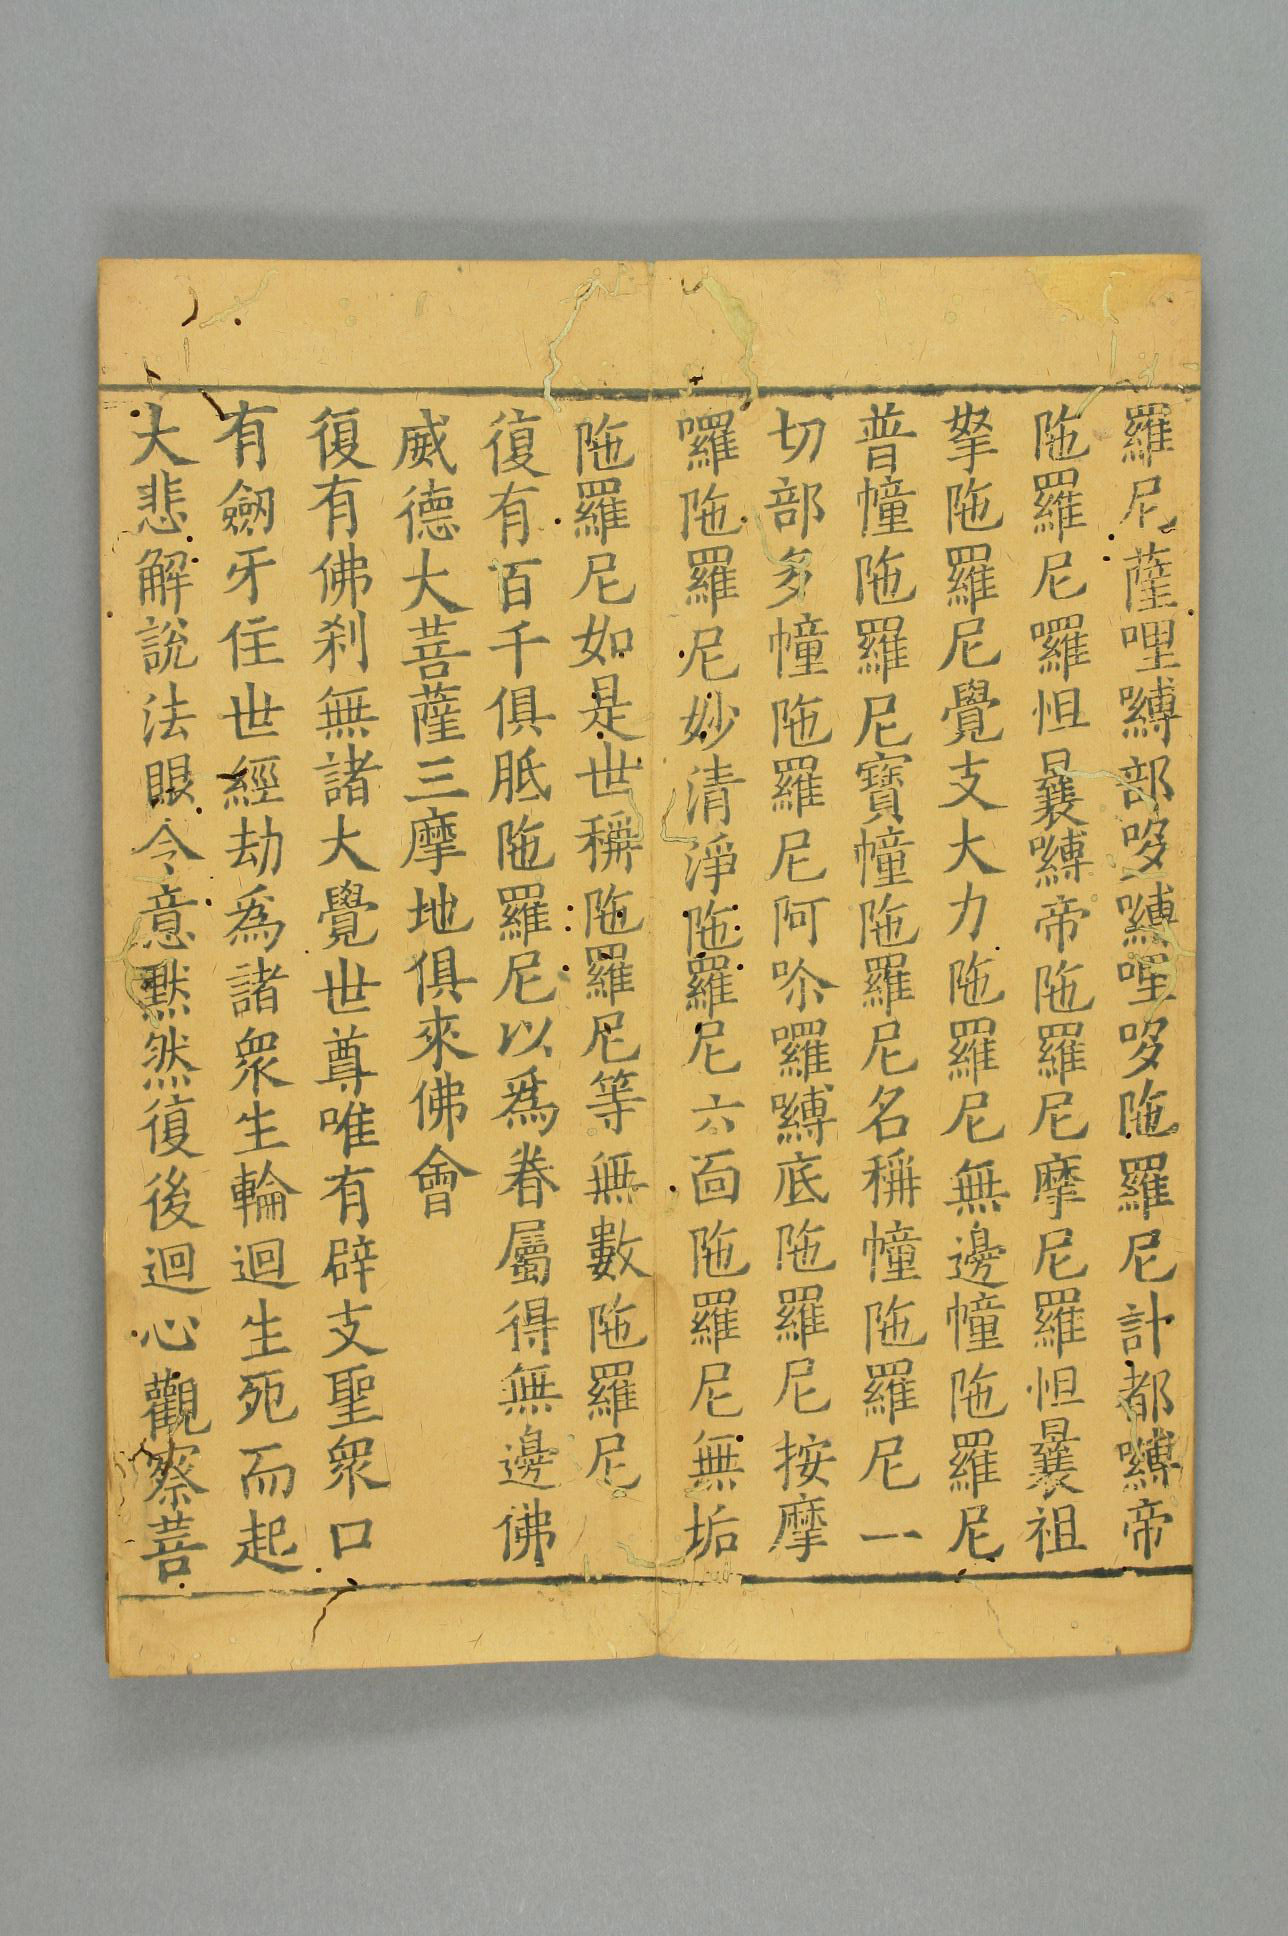 羅尼薩哩嚩部哆嚩哩哆陁羅尼計都嚩帝
陁羅尼囉怛曩嚩帝陁羅尼摩尼羅怛曩祖
拏陁羅尼覺支大力陁羅尼無邊幢陁羅尼
普幢陁羅尼寶幢陁羅尼名稱幢陁羅尼一
切部多幢陁羅尼阿吠囉嚩底陁羅尼按摩
囉陁羅尼妙清淨陁羅尼六面陁羅尼無垢
陁羅尼如是世稱陁羅尼等無數陁羅尼
復有百千俱胝陁羅尼以為眷屬得無邊佛
威德大菩薩三摩地俱來佛會
復有佛剎無諸大覺世尊唯有辟支聖衆口
有劒牙住世經劫為諸衆生輪迴生死而起
大悲解說法眼令意默然復後迴心觀察菩